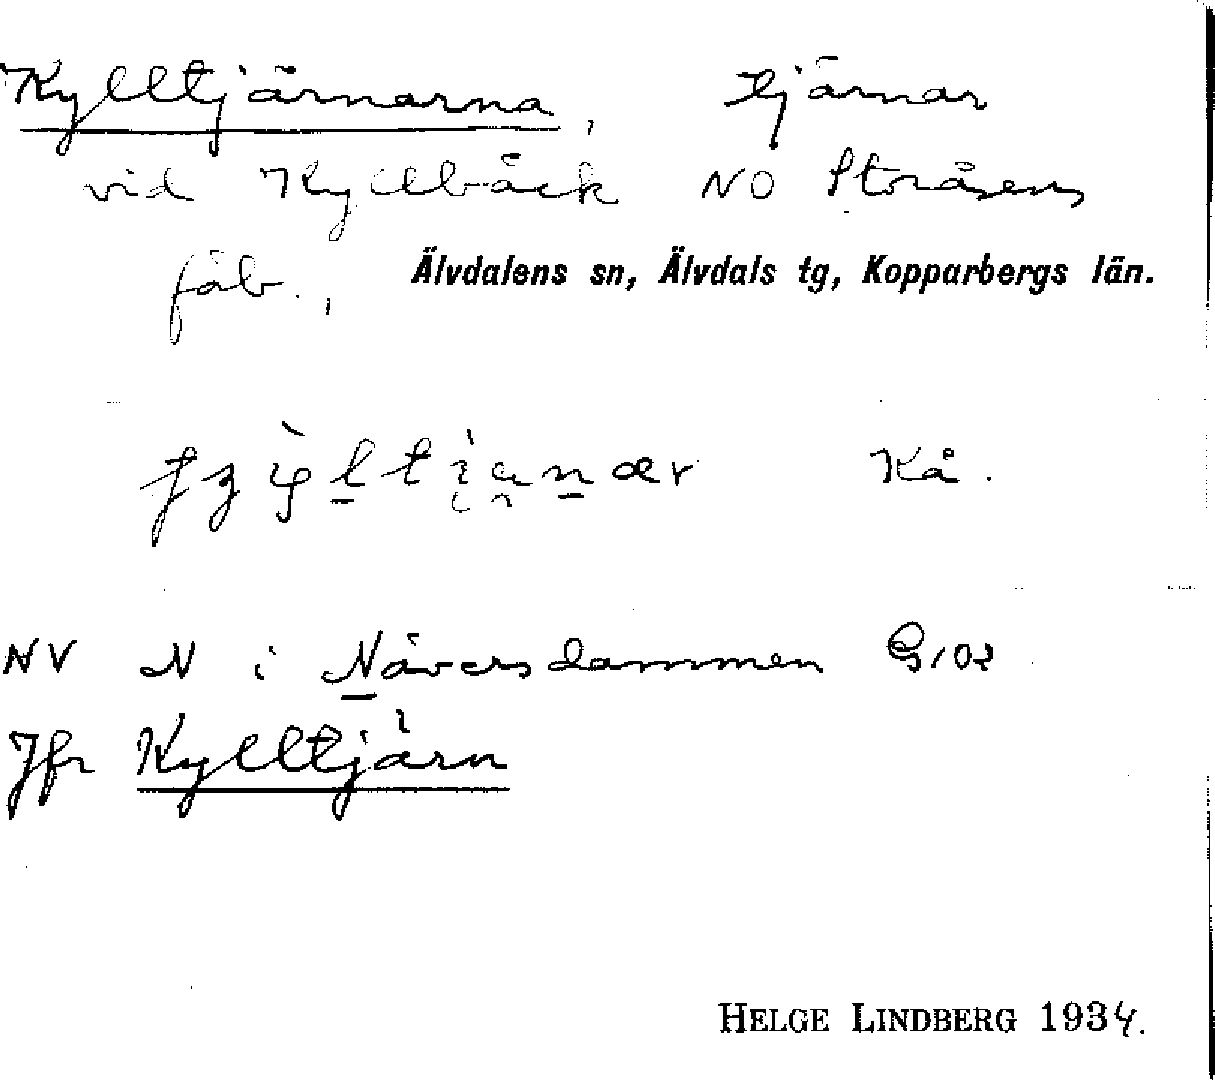 Kylltjärnarna, tjärnar
vid Kyllbäck NO Storåsens
fäb., Älvdalens sn, Älvdals tg, Kopparbergs län.
Kå.
NV N i Näversdammen G102
Jfr Kylltjärn
HELGE LINDBERG 1934.